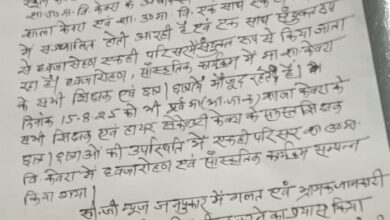 शा.उ.मा. वि. केवरा के
शाला केवरा एवं शा. उ.मा. वि. एक साथ
में सञ्चालित होती आरही है एवं एक साथ संयुक्त रूप
से ध्वजारोहण एकही परिसर में संयुक्त रूप से किया जाता
रहा है। ध्वजारोहण, सांस्कृतिक कार्यक्रम में मा. शा. केवरा
के सभी शिक्षक एवं छात्र। छात्राएं मौजूद रहते हैं।
दिनांक 15-8-25 को भी शाला केवरा के
सभी शिक्षक एवं हायर सेकेण्डरी केवरा के समस्त शिक्षक
छात्र। छात्राओं की उपस्थिति में एकही परिसर शा. उ.मा.
वि. केवरा में ध्वजारोहण एवं सांस्कृतिक कार्यक्रम सम्पन्न
किया गया।
सी.जी न्यूज जनपुकार में गलत एवं भ्रामक जानकारी
का प्रयास किया